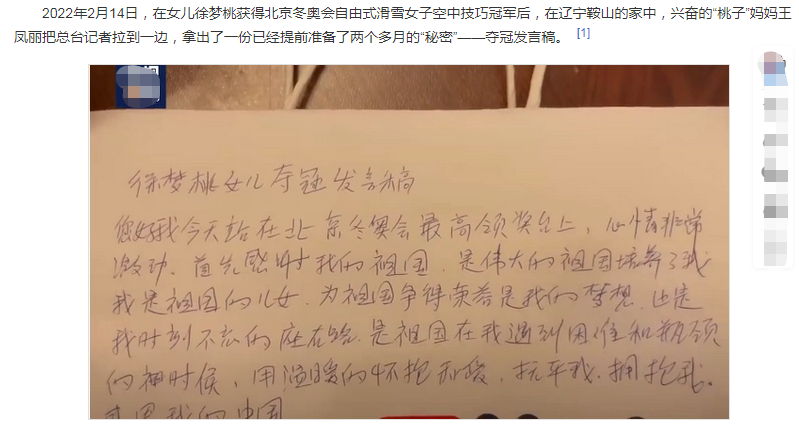 2022年2月14日,在女儿徐梦桃获得北京冬奥会自由式滑雪女子空中技巧冠军后,在辽宁鞍山的家中,兴奋的“桃子”妈妈王
凤丽把总台记者拉到一边,拿出了一份已经提前准备了两个多月的“秘密”——夺冠发言稿。 [1]
徐梦桃女儿夺冠发言稿
您好我今天站在北京冬奥会最高领奖台上,心情非常
激动.首先感谢我的祖国.是伟大的祖国培养了我
我是祖国的儿女.为祖国争得荣誉是我的梦想.也是
我时刻不忘的座右铭.是祖国在我遇到困难和瓶颈
的时候,用温暖的怀抱和爱,抚平我.拥抱我。
我的中国